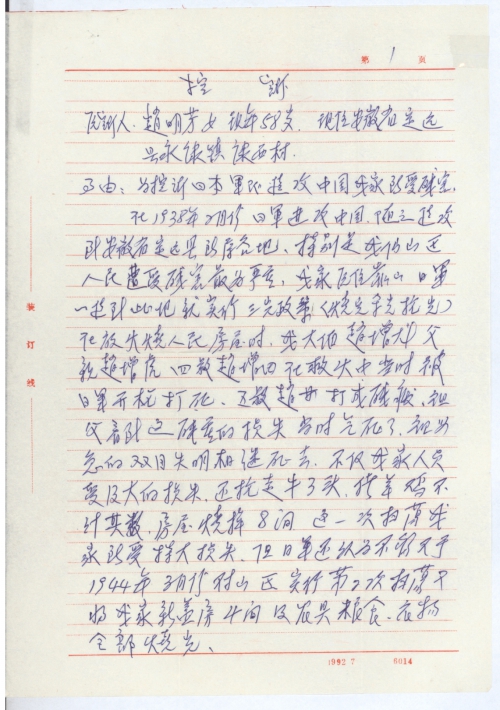 第 1 页
控 诉
控诉人. 赵明芳 女 现年58岁. 现住安徽省定远
县永康镇陈石村.
事由: 为控诉日本军队进攻中国我家所受残害.
在1938年2月份日军进攻中国,随之进攻
到安徽省定远县所属各地、特别是我们山区
人民遭受残害最为严重, 我家居住靠山 日军
一进到此地就实行三光政策(烧光杀光抢光)
在放火烧人民房屋时. 我大伯赵增科 父
亲赵增虎 四叔赵增四 在救火中当时被
日军开枪打死. 五叔赵 打成残疾. 祖
父看到这残害的损失当时气死了. 祖母
急的双目失明相继死去. 不仅我家人员
受很大的损失. 还抢走牛3头, 猪羊鸡不
计其数, 房屋烧掉8间 这一次扫荡我
家所受特大损失. 但日军还认为不够 于
1944年3月份对山区实行第2次扫荡又
将我家新盖房4间及农具 粮食. 衣物
全部烧光、
装 订 线
1992 7 6014